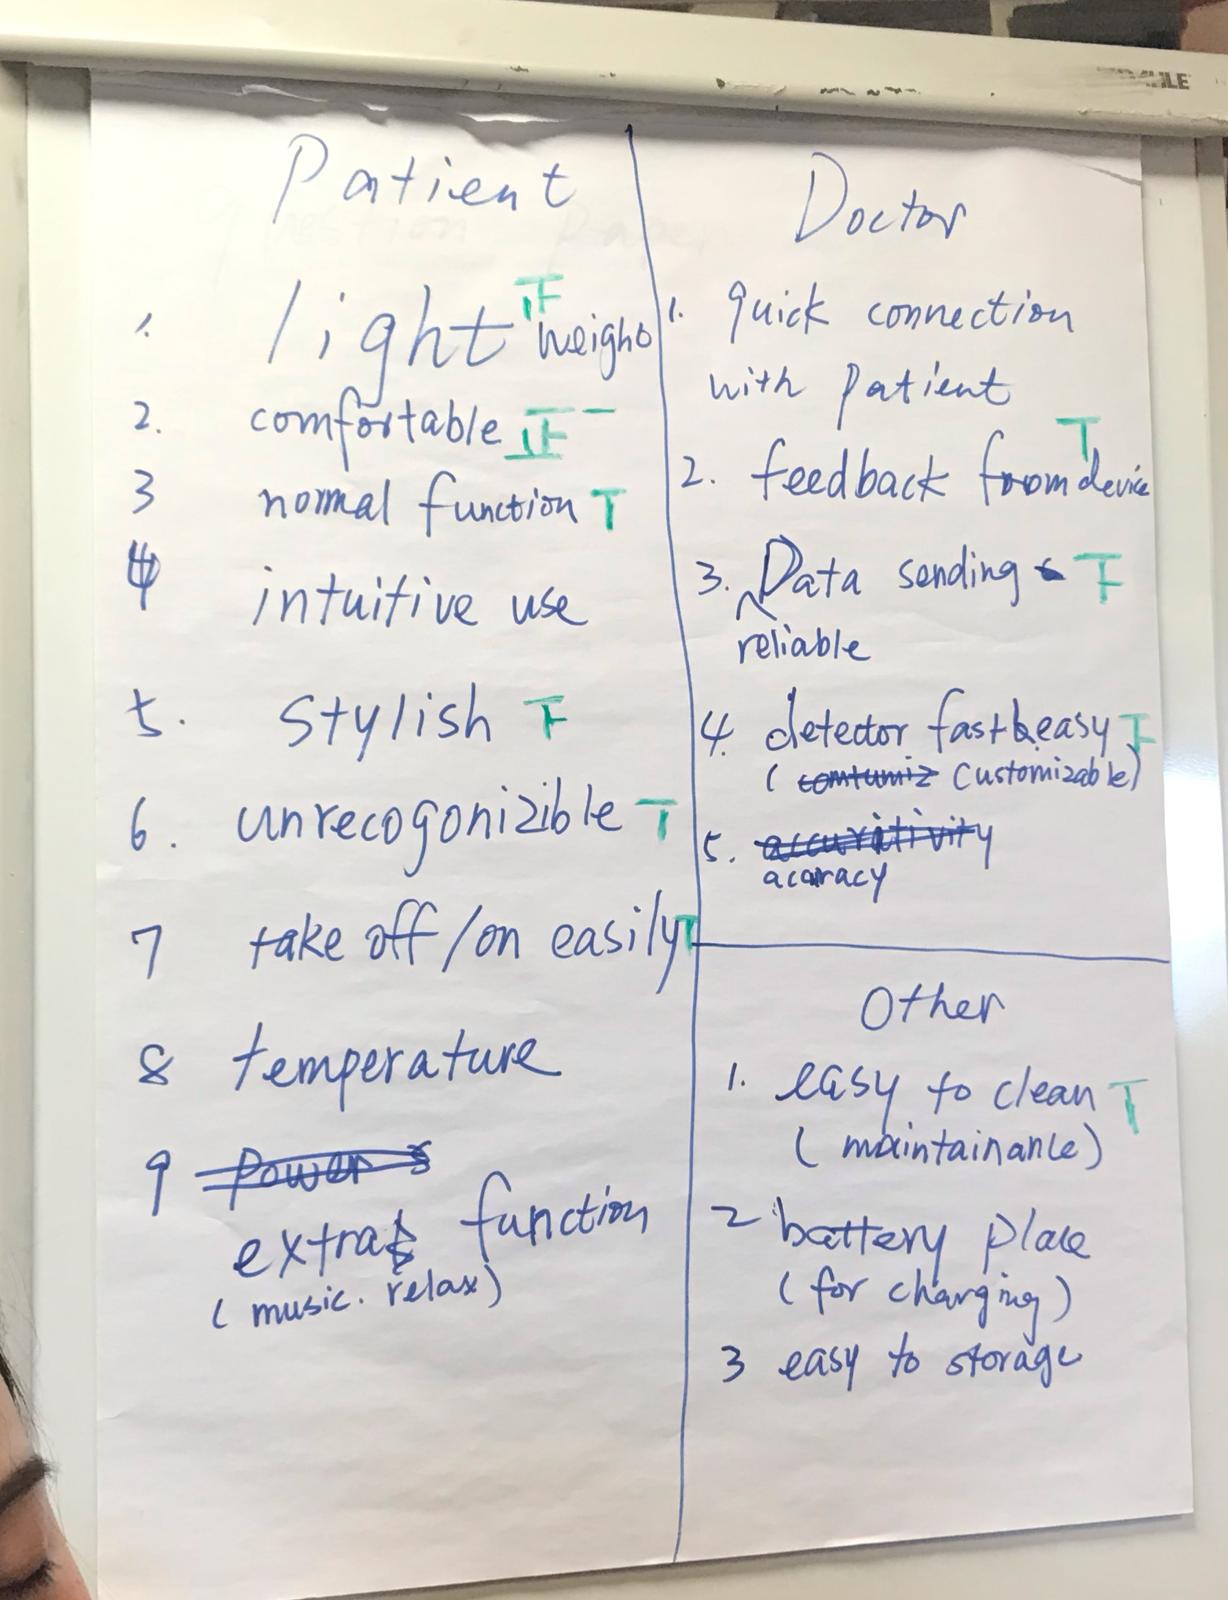 Patient
1. light weight 正
2. comfortable 正 一
3 normal function T
4 intuitive use
5. Stylish 下
6. unrecogonizible T
7 take off/on easily T
8 temperature
9 power s
extra function
( music. relax)
Doctor
1. quick connection
with patient
2. feedback from device T
3. Data sending 下
reliable
4. detector fast & easy 下
( comtumiz customizable)
5. accuritivity
acaracy
Other
1. easy to clean T
( maintainance)
2 battery place
( for charging)
3 easy to storage